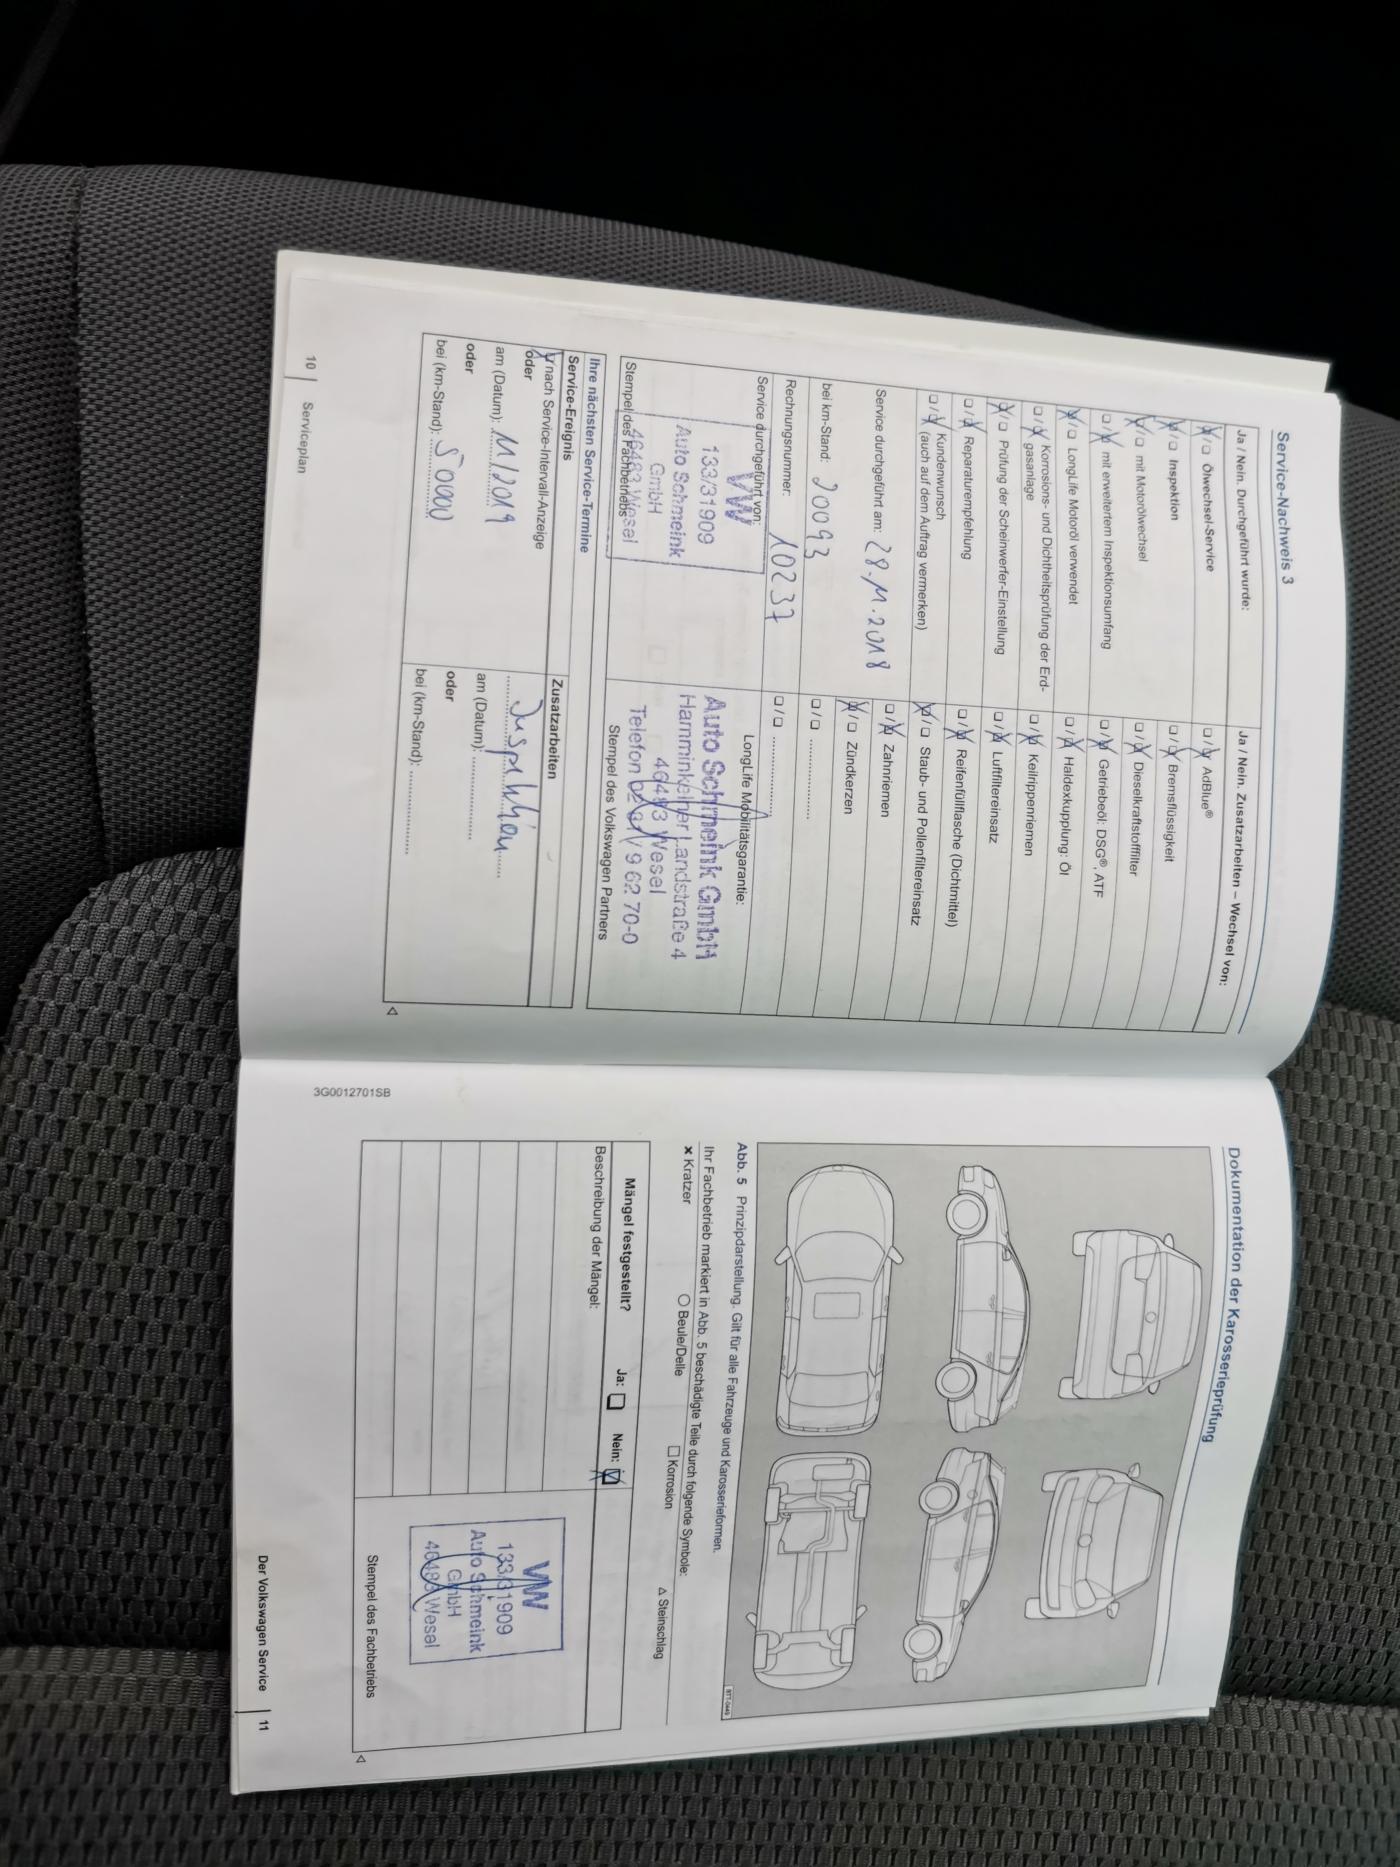 Service-Nachweis 3
Ja / Nein. Durchgeführt wurde:
☒/☐ Ölwechsel-Service
☒/☐ Inspektion
☒/☐ mit Motorölwechsel
☐/☒ mit erweitertem Inspektionsumfang
☒/☐ LongLife Motoröl verwendet
☐/☒ Korrosions- und Dichtheitsprüfung der Erd-
gasanlage
☒/☐ Prüfung der Scheinwerfer-Einstellung
☐/☒ Reparaturempfehlung
☐/☒ Kundenwunsch
(auch auf dem Auftrag vermerken)
Service durchgeführt am: 28.11.2018
bei km-Stand: 20093
Rechnungsnummer: 10237
Service durchgeführt von:
VW
133/31909
Auto Schmeink
GmbH
46483 Wesel
Stempel des Fachbetriebs
Ja / Nein. Zusatzarbeiten – Wechsel von:
☐/☒ AdBlue®
☐/☒ Bremsflüssigkeit
☐/☒ Dieselkraftstofffilter
☐/☒ Getriebeöl: DSG®, ATF
☐/☒ Haldexkupplung: Öl
☐/☒ Keilrippenriemen
☐/☒ Luftfiltereinsatz
☐/☒ Reifenfüllflasche (Dichtmittel)
☒/☐ Staub- und Pollenfiltereinsatz
☐/☒ Zahnriemen
☒/☐ Zündkerzen
☐/☐ ....................
☐/☐ ....................
LongLife Mobilitätsgarantie:
Auto Schmeink GmbH
Hamminkelner Landstraße 4
46483 Wesel
Telefon 0281 / 9 62 70-0
Stempel des Volkswagen Partners
Ihre nächsten Service-Termine
Service-Ereignis
☒ nach Service-Intervall-Anzeige
oder
am (Datum): 11/2019
oder
bei (km-Stand): 50000
Zusatzarbeiten
Inspektion
am (Datum): ....................
oder
bei (km-Stand): ....................
10 | Serviceplan
3G0012701SB
Dokumentation der Karosserieprüfung
BTT-0449
Abb. 5 Prinzipdarstellung. Gilt für alle Fahrzeuge und Karosserieformen.
Ihr Fachbetrieb markiert in Abb. 5 beschädigte Teile durch folgende Symbole:
× Kratzer ○ Beule/Delle □ Korrosion △ Steinschlag
Mängel festgestellt? Ja: ☐ Nein: ☒
Beschreibung der Mängel:
VW
133/31909
Auto Schmeink
GmbH
46483 Wesel
Stempel des Fachbetriebs
Der Volkswagen Service | 11